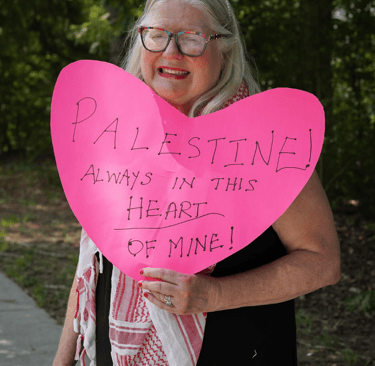 PALESTINE!
ALWAYS IN THIS
HEART
OF MINE!